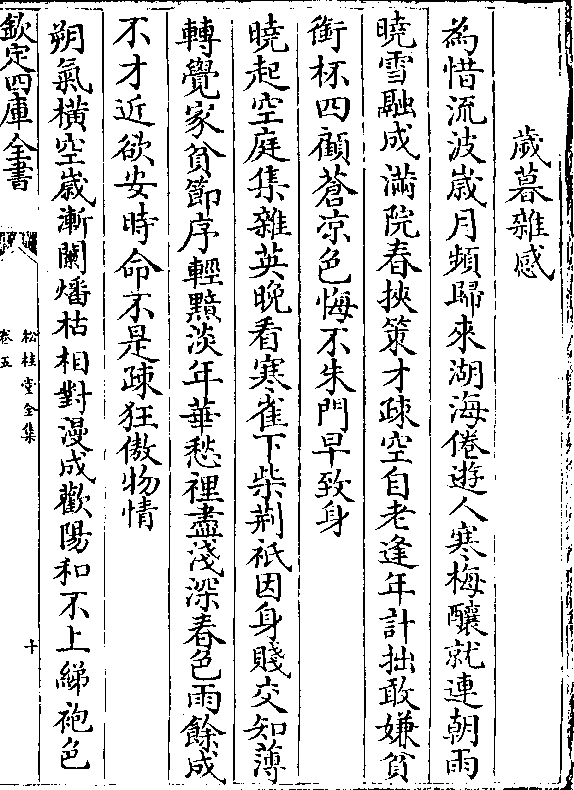 歲暮雜感
為惜流波歲月頻歸來湖海倦遊人寒梅釀就連朝雨
曉雪融成滿院春挾策才疎空自老逢年計拙敢嫌貧
銜杯四顧蒼凉色悔不朱門早致身
曉起空庭集雜英晚看寒雀下柴荆祇因身賤交知薄
轉覺家貧節序輕黯淡年華愁裡盡淺深春色雨餘成
不才近欲安時命不是疎狂傲物情
朔氣橫空歲漸闌燔枯相對漫成歡陽和不上綈袍色
欽定四庫全書
松桂堂全集
卷五
十